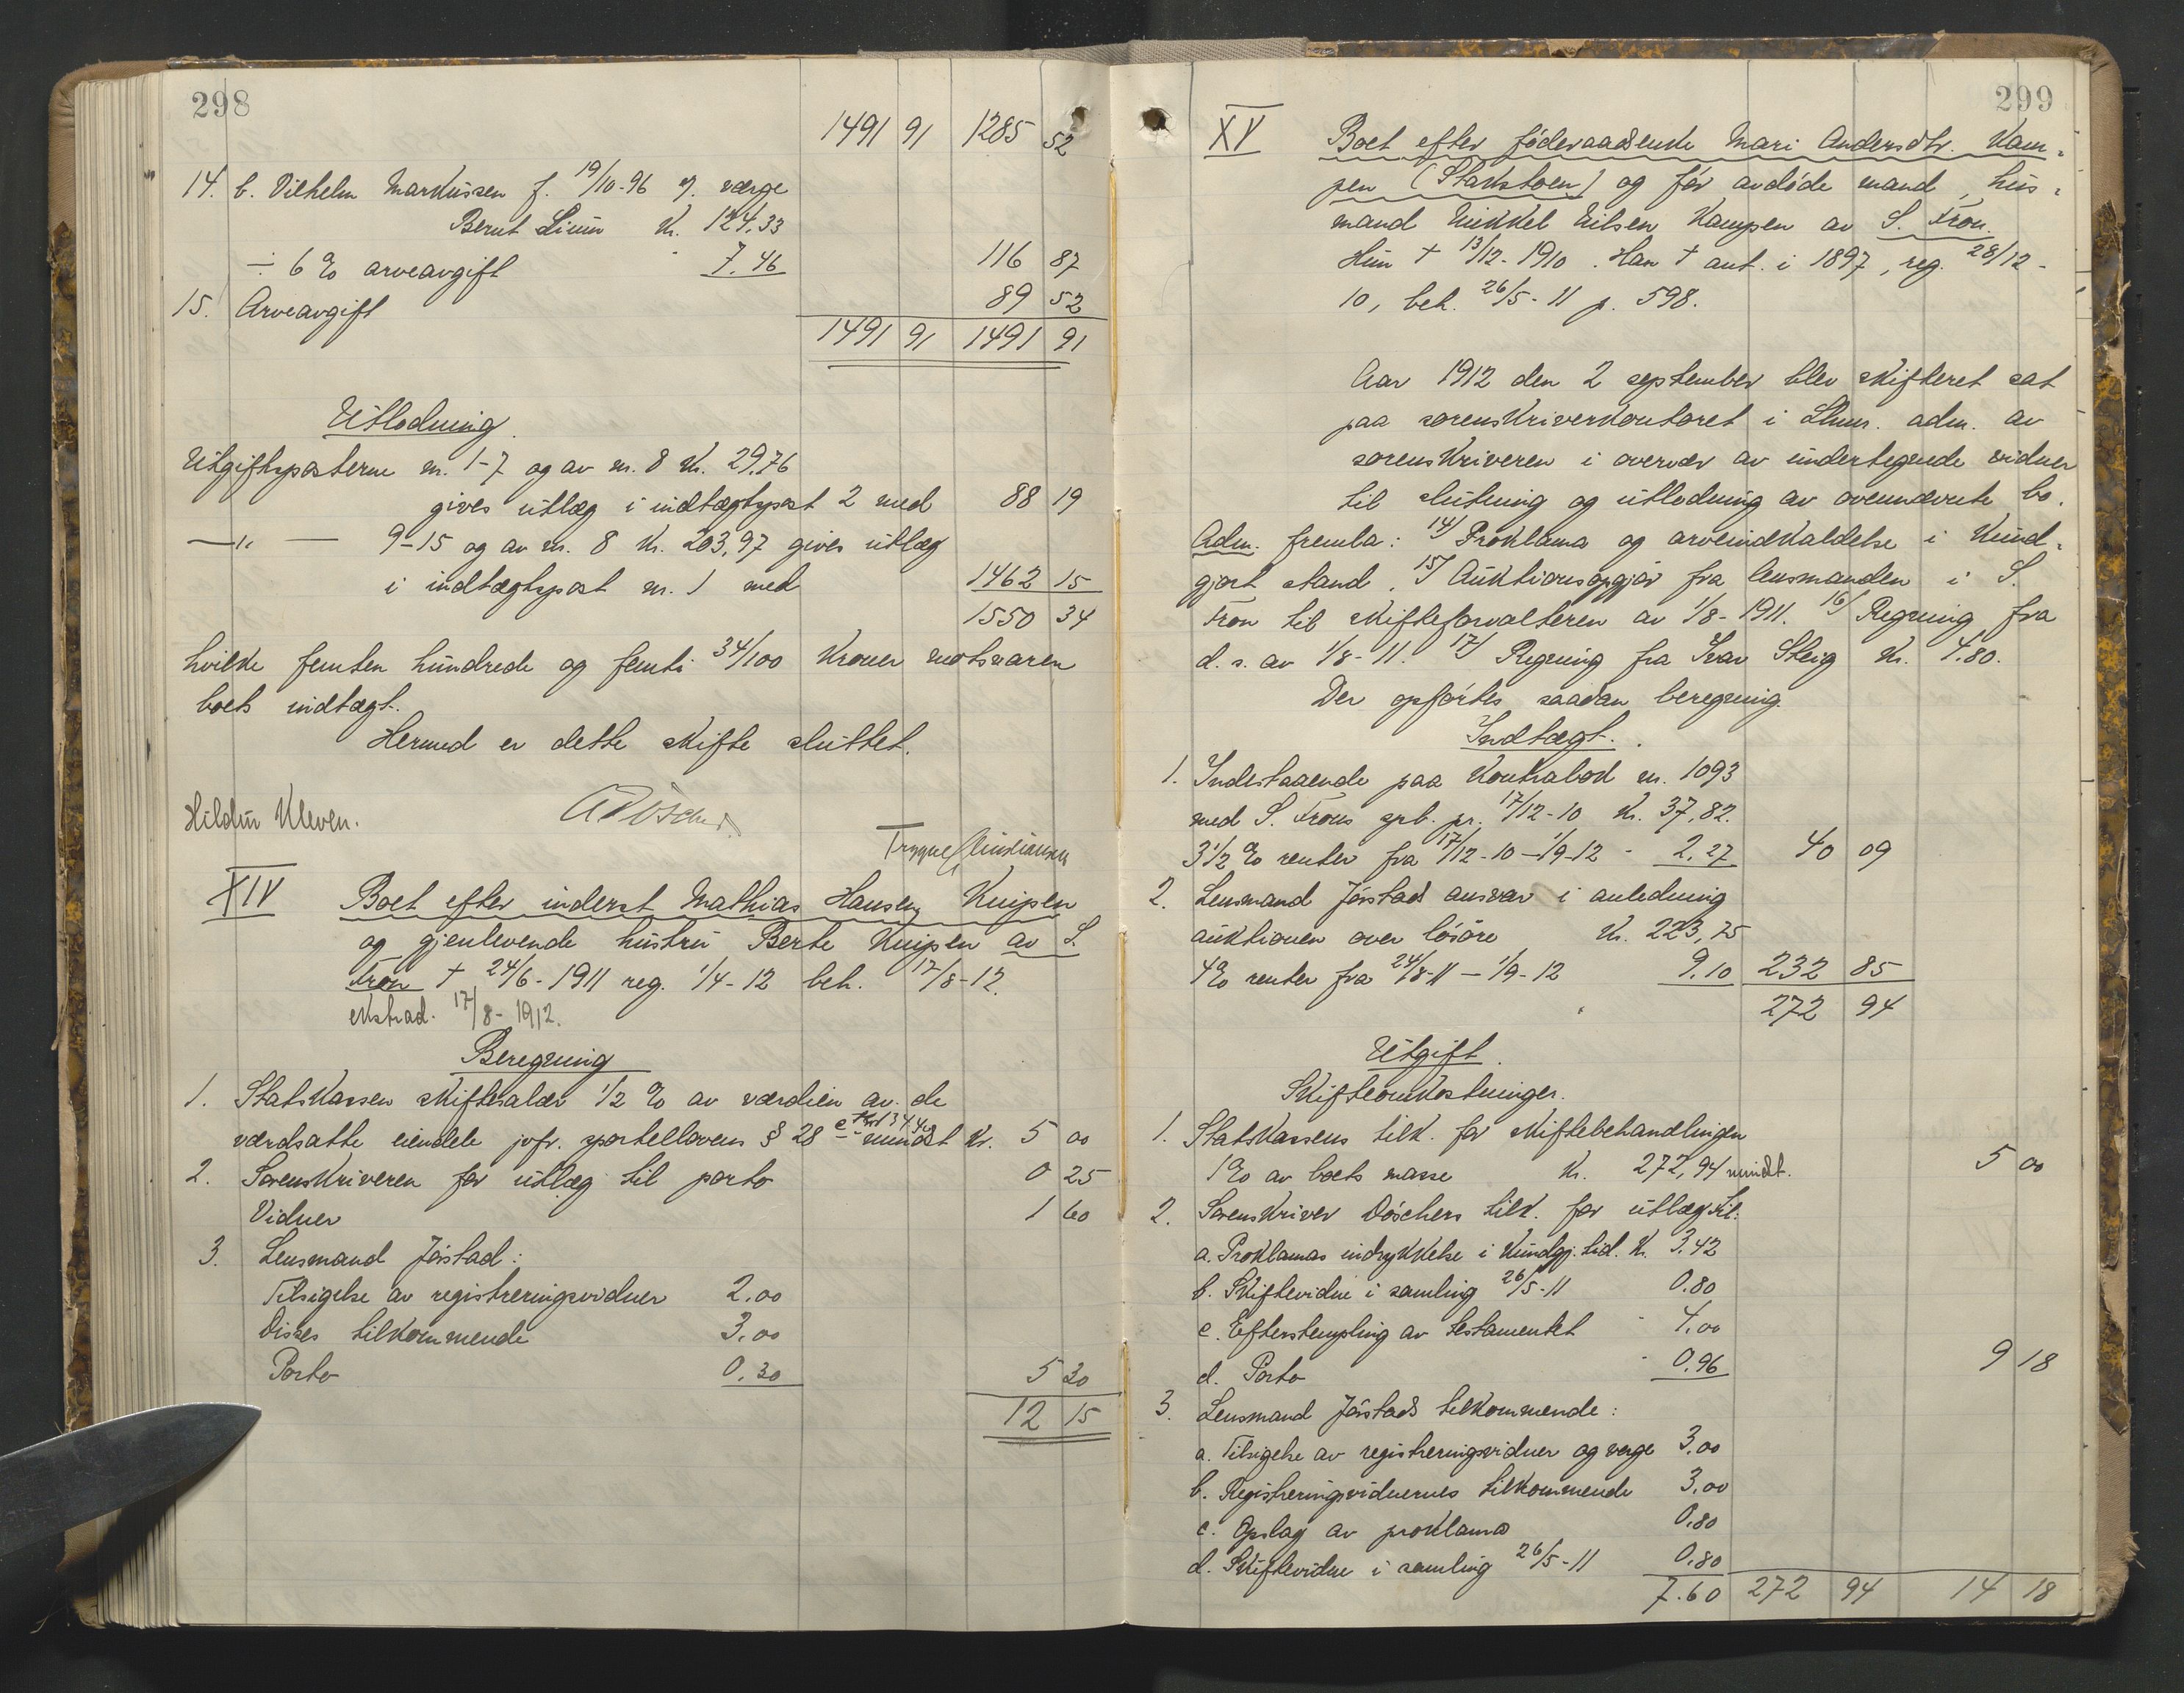 298
1491 91 1285 52
14. b. Vilhelm Markussen f. 19/10-96 v. værge
Bernt Lium kr. 124,33
÷ 6 % arveavgift " 7.46 116 87
15. Arveavgift 89 52
1491 91 1491 91
Utlodning.
Utgiftsposterne nr. 1-7 og av nr. 8 kr. 29,76
gives utlæg i indtægtspost 2 med 88 19
—"— 9-15 og av nr. 8 kr. 203,97 gives utlæg
i indtægtspost nr. 1 med 1462 15
1550 34
hvilke femten hundrede og femti 34/100 kroner motsvarer
boets indtægt.
Hermed er dette skifte sluttet.
Hildur Kleven. Döscher
Trygve Christiansen
XIV Boet efter inderst Mathias Hansen Knipen
og gjenlevende hustru Berte Knipen av S.
Fron † 24/6-1911 reg. 1/4-12 beh. 17/8-12.
ekstrad. 17/8-1912.
Beregning
1. Statskassen skiftesalær 1/2 % av værdien av de
værdsatte eiendele jvfr. sportellovens § 28 mindst kr. 5 00
2. Sorenskriveren for utlæg til porto 0 25
Vidner 1 60
3. Lensmand Jörstad:
Tilsigelse av registreringsvidner 2.00
Disses tilkommende 3.00
Porto 0.30 5 30
12 15
299
XV Boet efter föderaadsenke Mari Andersdtr. Kam-
pen (Stakstoen) og för avdöde mand, hus-
mand Mikkel Nilsen Kampen av S. Fron.
Hun † 13/12-1910. Han † ant. i 1897, reg. 28/12-
10, beh. 26/5-11 p. 598.
Aar 1912 den 2 september blev skifteret sat
paa sorenskriverkontoret i Lhmr. adm. av
sorenskriveren i overvær av undertegnede vidner
til slutning og utlodning av ovennævnte bo.
Adm. fremla: 14/ Proklama og arveindkaldelse i kund-
gjort stand. 15/ Auktionsopgjör fra lensmanden i S.
Fron til skifteforvalteren av 1/8-1911. 16/ Regning fra
d. s. av 1/8-11. 17/ Regning fra Ivar Steig kr. 4.80.
Der opförtes saadan beregning.
Indtægt.
1. Indestaaende paa kontrabok nr. 1093
med S. Frons sprb. pr. 17/12-10 kr. 37,82.
3 1/2 % renter fra 17/12-10—1/9-12 " 2,27 40 09
2. Lensmand Jörstad ansvar i anledning
auktionen over lösöre kr. 223,75
4 % renter fra 24/8-11—1/9-12 9.10 232 85
272 94
Utgift.
Skifteomkostninger.
1. Statskassens tilk. for skiftebehandlingen
1 % av boets masse kr. 272,94 mindst. 5 00
2. Sorenskriver Döschers tilk. for utlæg til:
a. Proklamas indrykkelse i kundgj. tid. kr. 3.42
b. Skiftevidne i samling 26/5-11 0.80
c. Efterstempling av testamentet " 4.00
d. Porto " 0.96 9 18
3. Lensmand Jörstads tilkommende:
a. Tilsigelse av registreringsvidner og verge 3.00
b. Registreringsvidnernes tilkommende 3.00
c. Opslag av proklama 0.80
d. Skiftevidne i samling 26/5-11 0.80
7.60 272 94 14 18